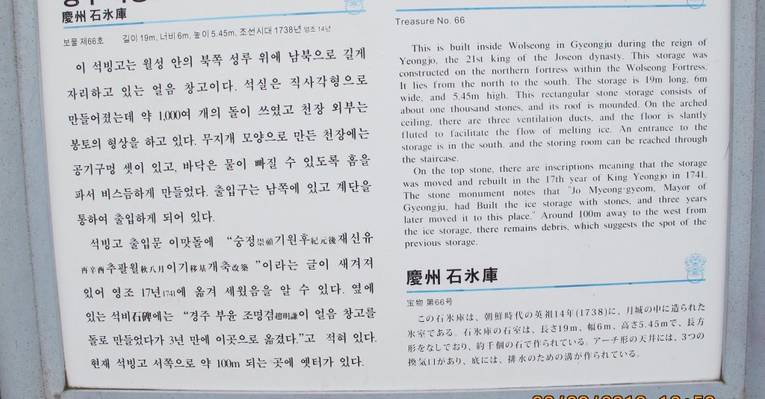 慶州 石氷庫
보물 제66호 길이 19m, 너비 6m, 높이 5.45m, 조선시대 1738년 영조 14년
이 석빙고는 월성 안의 북쪽 성루 위에 남북으로 길게
자리하고 있는 얼음 창고이다. 석실은 직사각형으로
만들어졌는데 약 1,000여 개의 돌이 쓰였고 천장 외부는
봉토의 형상을 하고 있다. 무지개 모양으로 만든 천장에는
공기구멍 셋이 있고, 바닥은 물이 빠질 수 있도록 홈을
파서 비스듬하게 만들었다. 출입구는 남쪽에 있고 계단을
통하여 출입하게 되어 있다.
석빙고 출입문 이맛돌에 “숭정崇禎기원후紀元後재신유
再辛酉추팔월秋八月이기移基개축改築”이라는 글이 새겨져
있어 영조 17년1741에 옮겨 세웠음을 알 수 있다. 옆에
있는 석비石碑에는 “경주 부윤 조명겸趙明謙이 얼음 창고를
돌로 만들었다가 3년 만에 이곳으로 옮겼다.”고 적혀 있다.
현재 석빙고 서쪽으로 약 100m 되는 곳에 옛터가 있다.
Treasure No. 66
This is built inside Wolseong in Gyeongju during the reign of
Yeongjo, the 21st king of the Joseon dynasty. This storage was
constructed on the northern fortress within the Wolseong Fortress.
It lies from the north to the south. The storage is 19m long, 6m
wide, and 5.45m high. This rectangular stone storage consists of
about one thousand stones, and its roof is mounded. On the arched
ceiling, there are three ventilation ducts, and the floor is slantly
fluted to facilitate the flow of melting ice. An entrance to the
storage is in the south, and the storing room can be reached through
the staircase.
On the top stone, there are inscriptions meaning that the storage
was moved and rebuilt in the 17th year of King Yeongjo in 1741.
The stone monument notes that "Jo Myeong-gyeom, Mayor of
Gyeongju, had Built the ice storage with stones, and three years
later moved it to this place." Around 100m away to the west from
the ice storage, there remains debris, which suggests the spot of the
previous storage.
慶州 石氷庫
宝物 第66号
この石氷庫は、朝鮮時代の英祖14年(1738)に、月城の中に造られた
氷室である。石氷庫の石室は、長さ19m、幅6m、高さ5.45mで、長方
形をなしており、約千個の石で作られている。アーチ形の天井には、3つの
換気口があり、底には、排水のための溝が作られている。